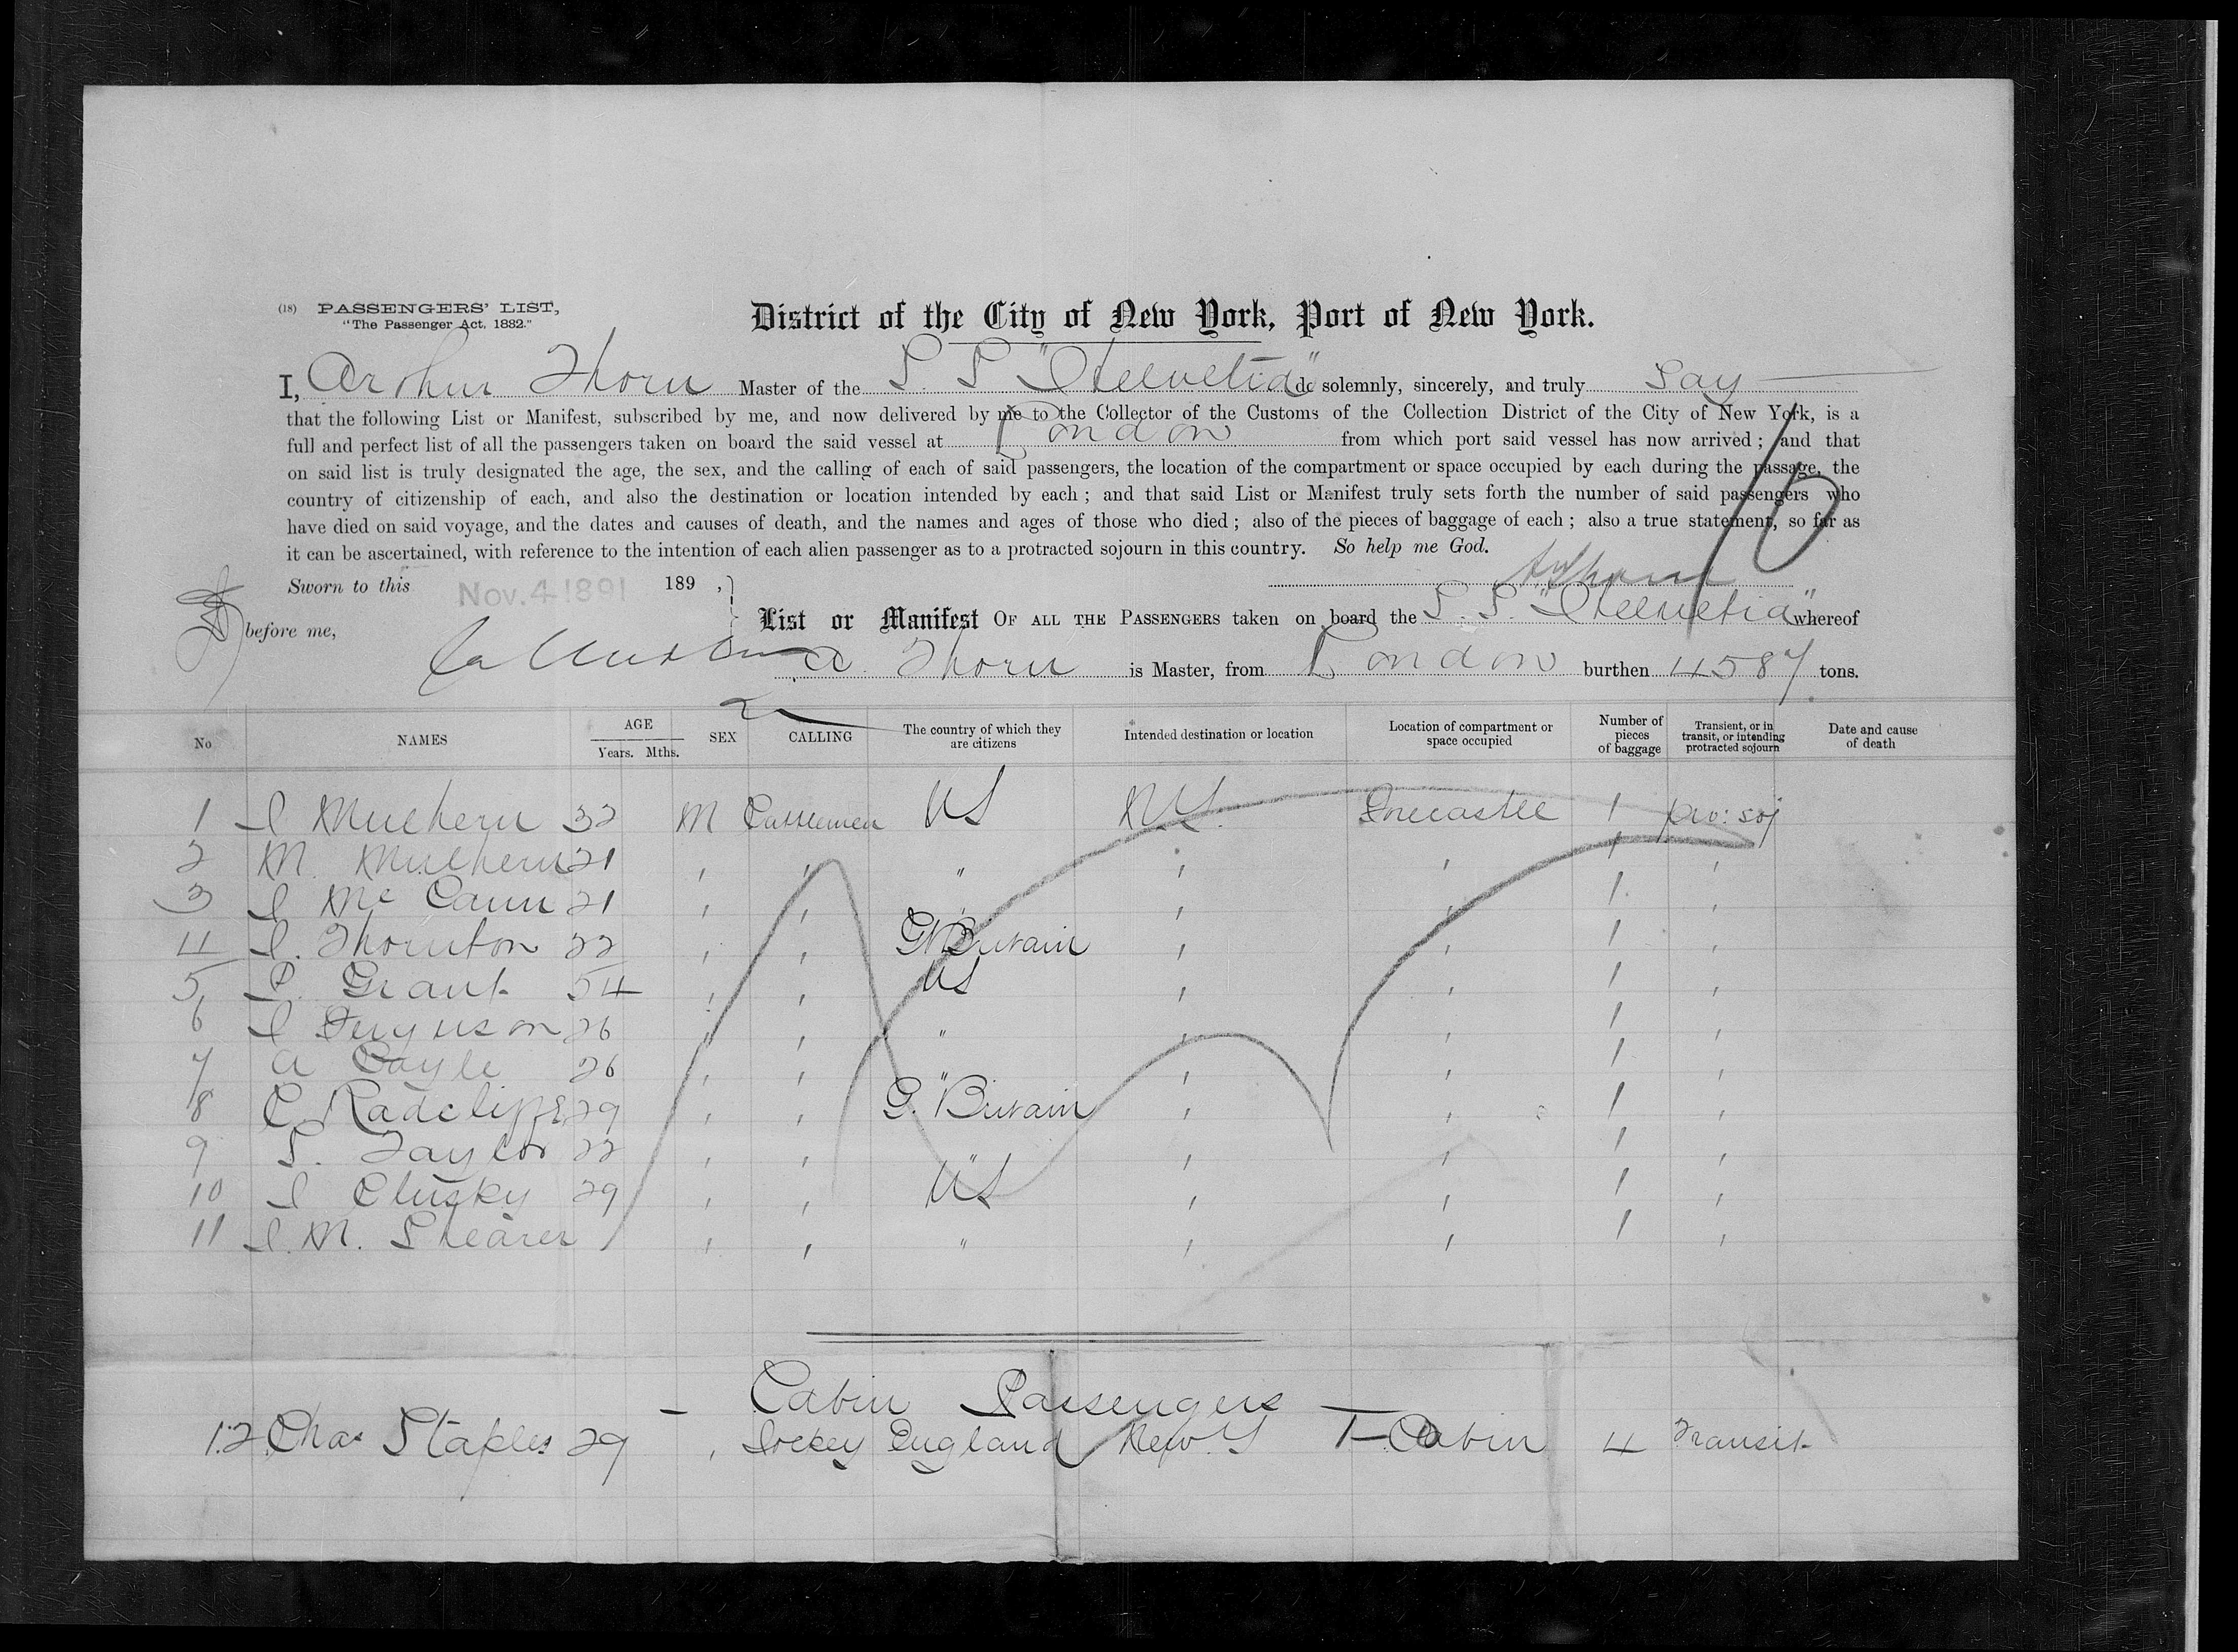 (18) PASSENGERS' LIST,
"The Passenger Act, 1882."
District of the City of New York, Port of New York.
I, Arthur Thorn Master of the S. S "Helvetia" do solemnly, sincerely, and truly Say
that the following List or Manifest, subscribed by me, and now delivered by me to the Collector of the Customs of the Collection District of the City of New York, is a
full and perfect list of all the passengers taken on board the said vessel at London from which port said vessel has now arrived ; and that
on said list is truly designated the age, the sex, and the calling of each of said passengers, the location of the compartment or space occupied by each during the passage, the
country of citizenship of each, and also the destination or location intended by each ; and that said List or Manifest truly sets forth the number of said passengers who
have died on said voyage, and the dates and causes of death, and the names and ages of those who died ; also of the pieces of baggage of each ; also a true statement, so far as
it can be ascertained, with reference to the intention of each alien passenger as to a protracted sojourn in this country. So help me God.
10
Sworn to this Nov. 4-1891 189 , AThorn
before me,
List or Manifest OF ALL THE PASSENGERS taken on board the S. S. "Helvetia" whereof
A. Thorn is Master, from London burthen 4587 tons.
No NAMES AGE Years. Mths. SEX CALLING The country of which they are citizens Intended destination or location Location of compartment or space occupied Number of pieces of baggage Transient, or in transit, or intending protracted sojourn Date and cause of death
1 J Mulhern 32 M Cattlemen US N.Y. Forecastle 1 pro: soj
2 M. Mulhern 21 , , " , , 1 ,
3 J Mc Cann 21 , , " , , 1 ,
4 J. Thornton 22 , , Gt Britain , , 1 ,
5 P. Grant 54 , , US , , 1 ,
6 J Ferguson 26 , , " , , 1 ,
7 A Coyle 26 , , " , , 1 ,
8 C Radcliffe 29 , , G. Britain , , 1 ,
9 S. Taylor 22 , , " , , 1 ,
10 J Clusky 29 , , US , , 1 ,
11 J. M. Shearer , , " , , 1 ,
Cabin Passengers
12 Chas Staples 29 , Jockey England New Y Cabin 4 Transit